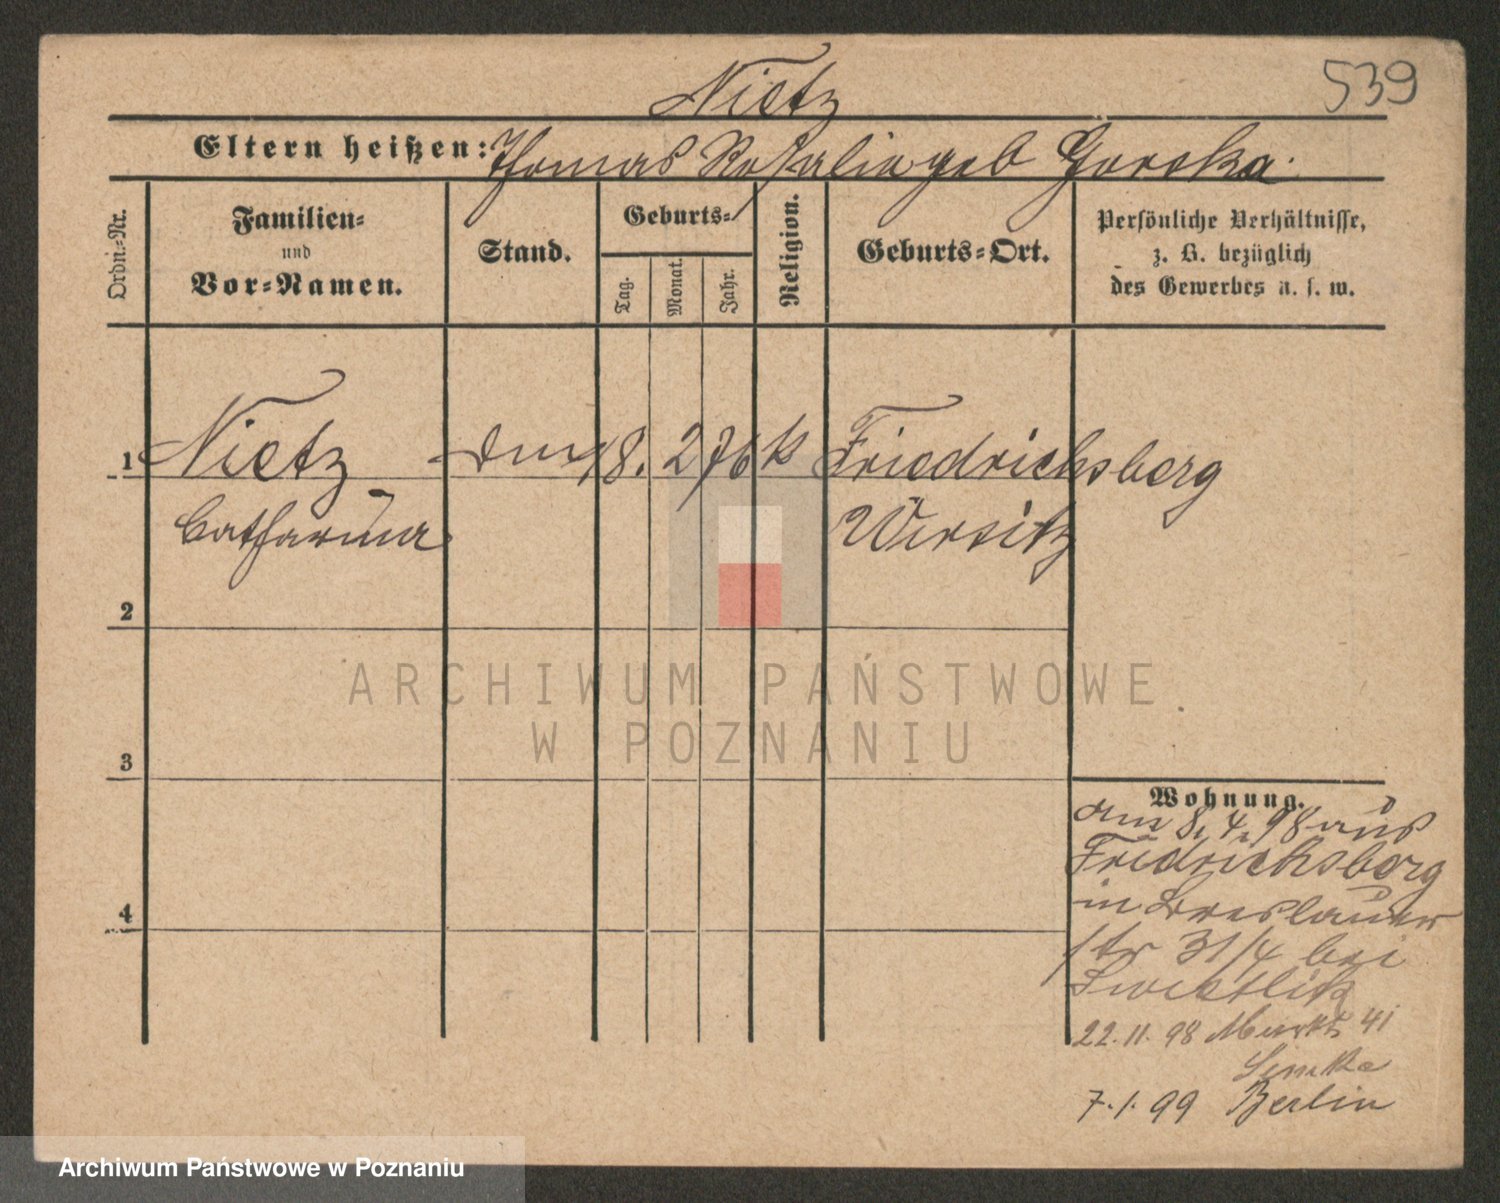 539
Nietz
Eltern heißen: Thomas Rosalie geb Gorska
Ordn.-Nr.
Familien-
und
Vor-Namen.
Stand.
Geburts-
Tag.
Monat.
Jahr.
Religion.
Geburts-Ort.
Persönliche Verhältnisse,
z. B. bezüglich
des Gewerbes u. s. w.
1 Nietz 18. 2 76 k Friedrichsberg
Catharina Wirsitz
2
3
4
Wohnung.
am 8. 4. 98 aus
Fridrichsberg
in Breslauer
str 31/4 bei
22. 11. 98 Markt 41
7. 1. 99 Berlin
ARCHIWUM PAŃSTWOWE
W POZNANIU
Archiwum Państwowe w Poznaniu